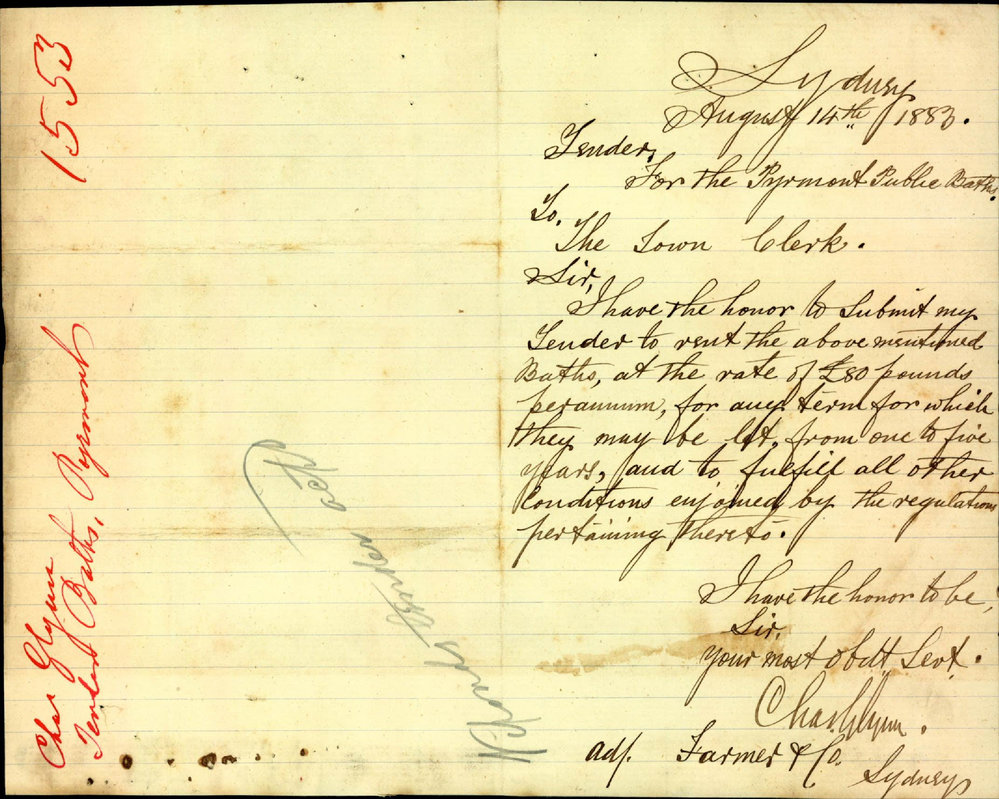 1553
Chas Glynn
Tender Baths, Pyrmont
Tender accpd
Sydney
August 14th 1883.
Tender,
For the Pyrmont Public Baths.
To,
The Town Clerk.
Sir,
I have the honor to Submit my
Tender to rent the above mentioned
Baths, at the rate of £80 pounds
per annum, for any term for which
they may be let, from one to five
years, and to fulfill all other
Conditions enjoined by the regulations
pertaining thereto.
I have the honor to be,
Sir,
Your most obdt. Sevt.
Chas. Glynn.
adj. Farmer & Co.
Sydney